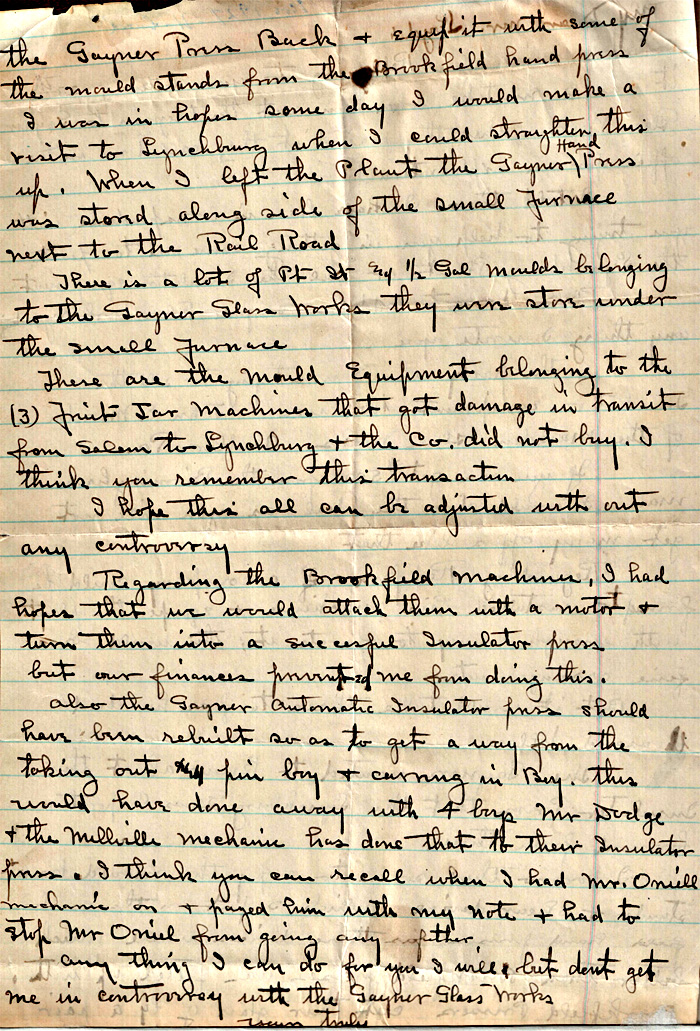 the Gayner Press Back + equip it with some of
the mould stands from the Brookfield hand press
I was in hopes some day I would make a
visit to Lynchburg when I could straghten this
up. When I left the Plant the Gayner Hand Press
was stored along side of the small Furnace
next to the Rail Road
There is a lot of Pt Qt 1/2 Gal moulds belonging
to the Gayner Glass Works they were store under
the small Furnace
There are the mould Equipment belonging to the
(3) Fruit Jar Machines that got damage in transit
from Salem to Lynchburg + the Co. did not buy. I
think you remember this transaction
I hope this all can be adjusted with out
any controversy
Regarding the Brookfield machines, I had
hopes that we would attach them with a motor +
turn them into a succesful Insulator press
but our finances prevented me from doing this.
also the Gayner Automatic Insulator press should
have been rebuilt so as to get a way from the
taking out pin boy + carring in Boy. this
would have done away with 4 boys Mr Dodge
+ the Millville mechanic has done that to their Insulator
press. I think you can recall when I had Mr. Oniell
mechanic on + payed him with my note + had to
stop Mr Oniel from going any
any thing I can do for you I will, but dont get
me in controversy with the Gayner Glass Works
yours truly